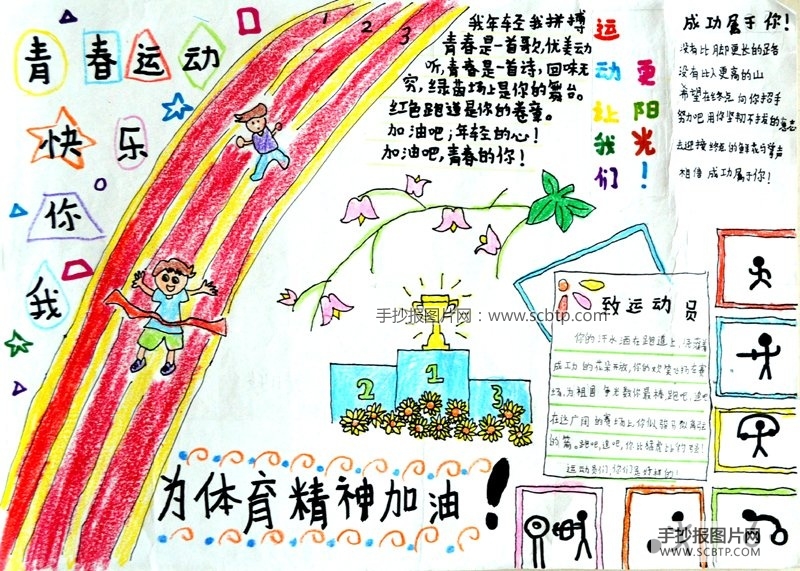 青春运动
快乐
你
我
1 2 3
我年轻我拼搏
青春是一首歌,优美动
听,青春是一首诗,回味无
穷,绿茵场上是你的舞台。
红色跑道是你的卷章。
加油吧,年轻的心!
加油吧,青春的你!
运动让我们
更阳光!
成功属于你!
没有比脚更长的
没有比人更高的山
希望在终点向你招手
努力吧用你坚韧不拔的意志
去迎接终点的鲜花与掌声
相信成功属于你!
手抄报图片网:www.scbtp.com
2 1 3
致运动员
你的汗水洒在跑道上,
成功的花朵开放,你的欢笑飞扬在赛
场,为祖国争光数你最棒跑吧,追吧
在这广阔的赛场上你似骏马似离弦
的箭。跑吧,追吧,你比
运动员们,你们是好样的!
为体育精神加油!
手抄报图片网
WWW.SCBTP.COM